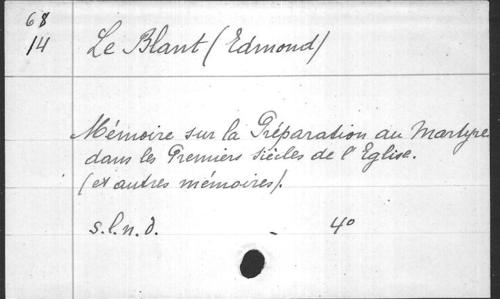 68
14 Le Blant (Edmond)
Mémoire sur la Préparation au Martyre
dans les Premiers siècles de l'Eglise.
(et autres mémoires).
s.l.n.d. - 4°